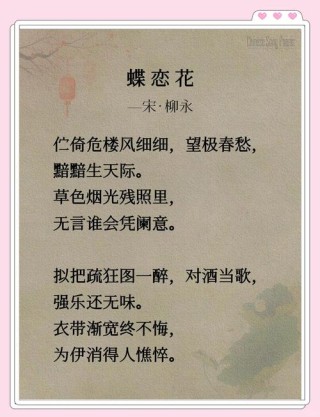 Chinese Song Poems
蝶恋花
—宋·柳永
伫倚危楼风细细，望极春愁，
黯黯生天际。
草色烟光残照里，
无言谁会凭阑意。
拟把疏狂图一醉，对酒当歌，
强乐还无味。
衣带渐宽终不悔，
为伊消得人憔悴。